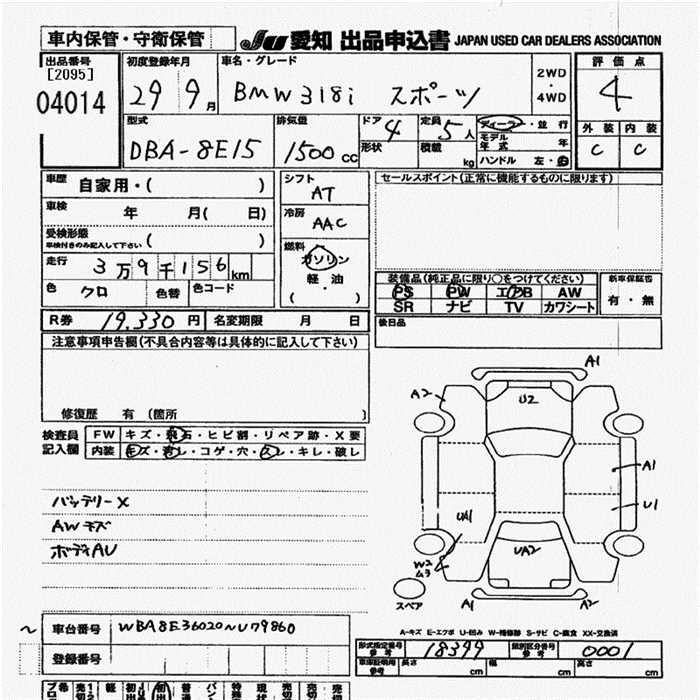 車内保管・守衛保管
JU 愛知 出品申込書 JAPAN USED CAR DEALERS ASSOCIATION
出品番号
[2095]
04014
初度登録年月
29 9月
車名・グレード
BMW 318i スポーツ
2WD
・
4WD
評価点
4
外装 内装
C C
型式
DBA-8E15
排気量
1500cc
ドア 4
形状
定員 5人
積載 kg
ディーラー・並行
モデル年式 年
ハンドル 左・右
車歴 自家用・( )
車検 年 月( 日)
受検形態
車検付きのみ記入して下さい ( )
走行 3万9千156km
色 クロ 色替 色コード
シフト
AT
冷房
AAC
燃料
ガソリン
軽・油
( )
セールスポイント(正常に機能するものに限ります)
装備品(純正品に限り○をつけてください)
PS PW エアB AW
SR ナビ TV カワシート
新車保証書
有・無
R券 19,330円 名変期限 月 日
後日品
注意事項申告欄(不具合内容等は具体的に記入して下さい)
修復歴 有 (箇所 )
検査員
記入欄
FW キズ・飛石・ヒビ割・リペア跡・X要
内装 キズ・汚レ・コゲ・穴・スレ・キレ・破レ
バッテリーX
AWキズ
ボディAU
A1
A2
U2
A1
U1
UA1
UA2
W2
ムラ
スペア
A1
A2
A-キズ E-エクボ U-凹み W-補修跡 S-サビ C-腐食 XX-交換済
～ 車台番号 WBA8E36020~U79860
登録番号
形式指定番号
参考
18399
類別区分番号
参考
0001
車庫証明用
参考
長さ cm 幅 cm 高さ cm